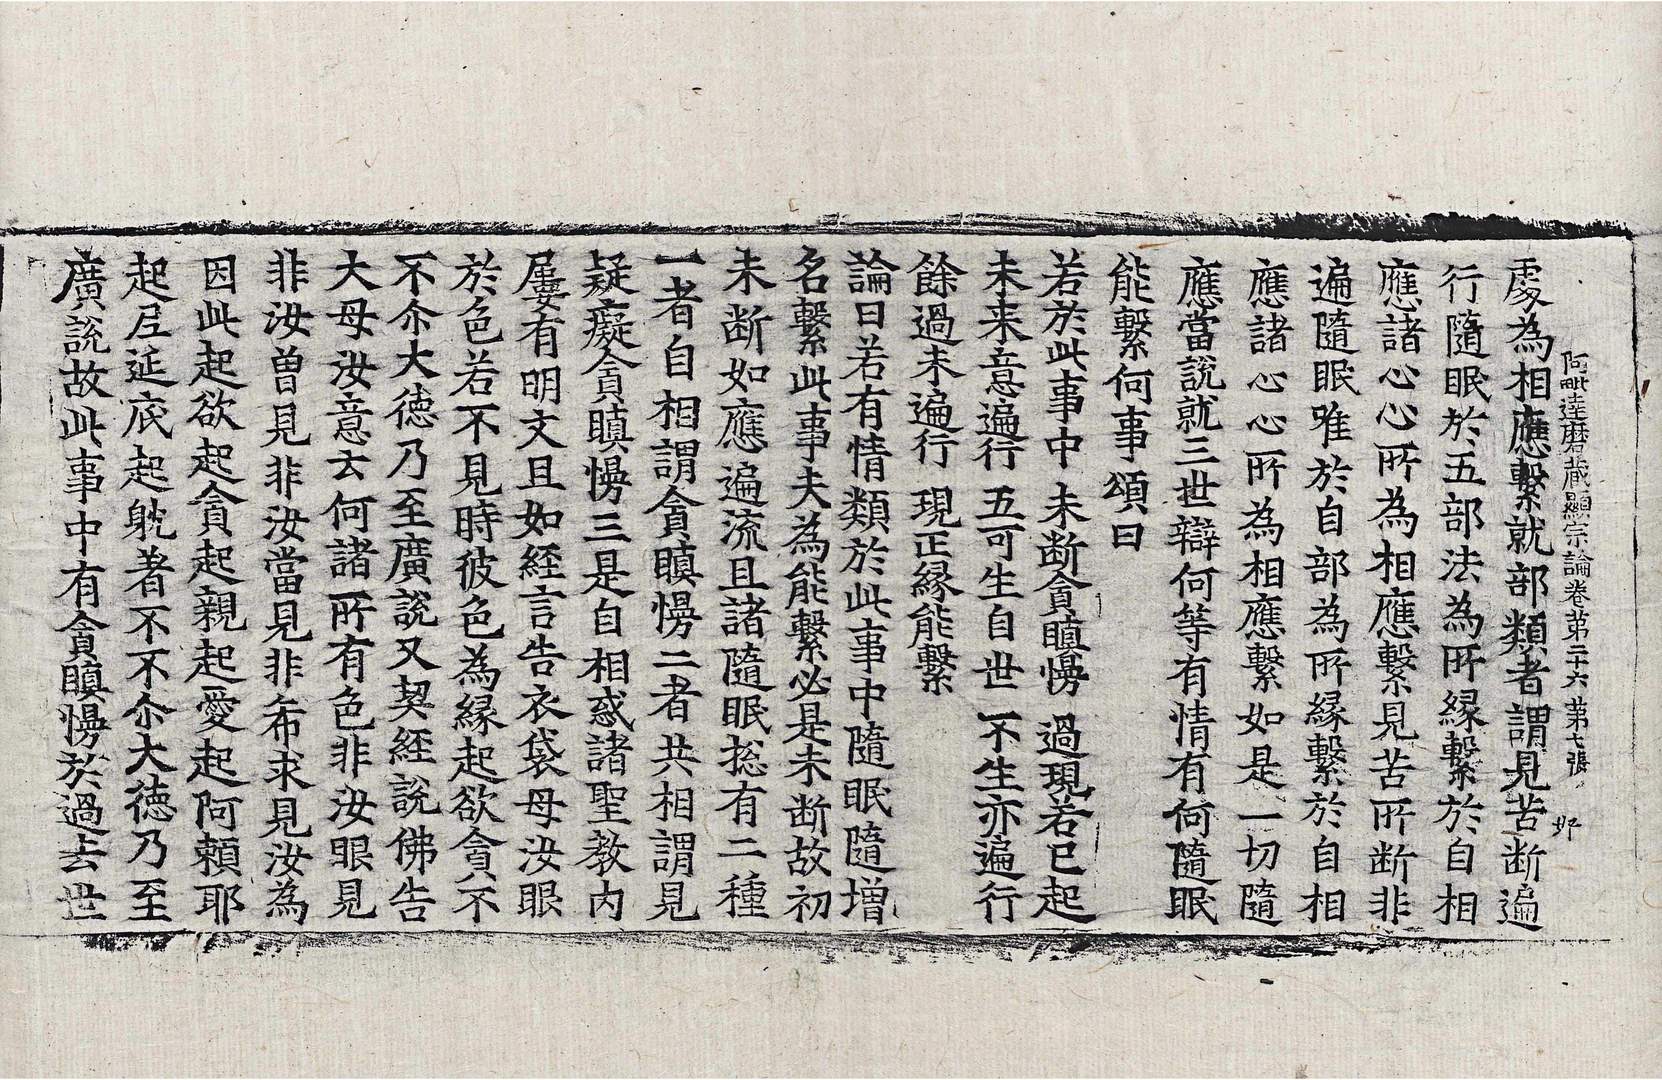 阿毗達磨藏顯宗論卷第二十六 第七張 妒
處為相應繫就部類者謂見苦斷遍
行隨眠於五部法為所緣繫於自相
應諸心心所為相應繫見苦所斷非
遍隨眠唯於自部為所緣繫於自相
應諸心心所為相應繫如是一切隨
應當說就三世辯何等有情有何隨眠
能繫何事頌曰
若於此事中 未斷貪瞋慢 過現若已起
未来意遍行 五可生自世 不生亦遍行
餘過未遍行 現正緣能繫
論曰若有情類於此事中隨眠隨增
名繫此事夫為能繫必是未斷故初
未斷如應遍流且諸隨眠捴有二種
一者自相謂貪瞋慢二者共相謂見
疑癡貪瞋慢三是自相惑諸聖教內
屢有明文且如經言告衣袋母汝眼
於色若不見時彼色為緣起欲貪不
不尒大德乃至廣說又契經說佛告
大母汝意云何諸所有色非汝眼見
非汝曾見非汝當見非希求見汝為
因此起欲起貪起親起愛起阿賴耶
起尼延底起躭著不不尒大德乃至
廣說故此事中有貪瞋慢於過去世